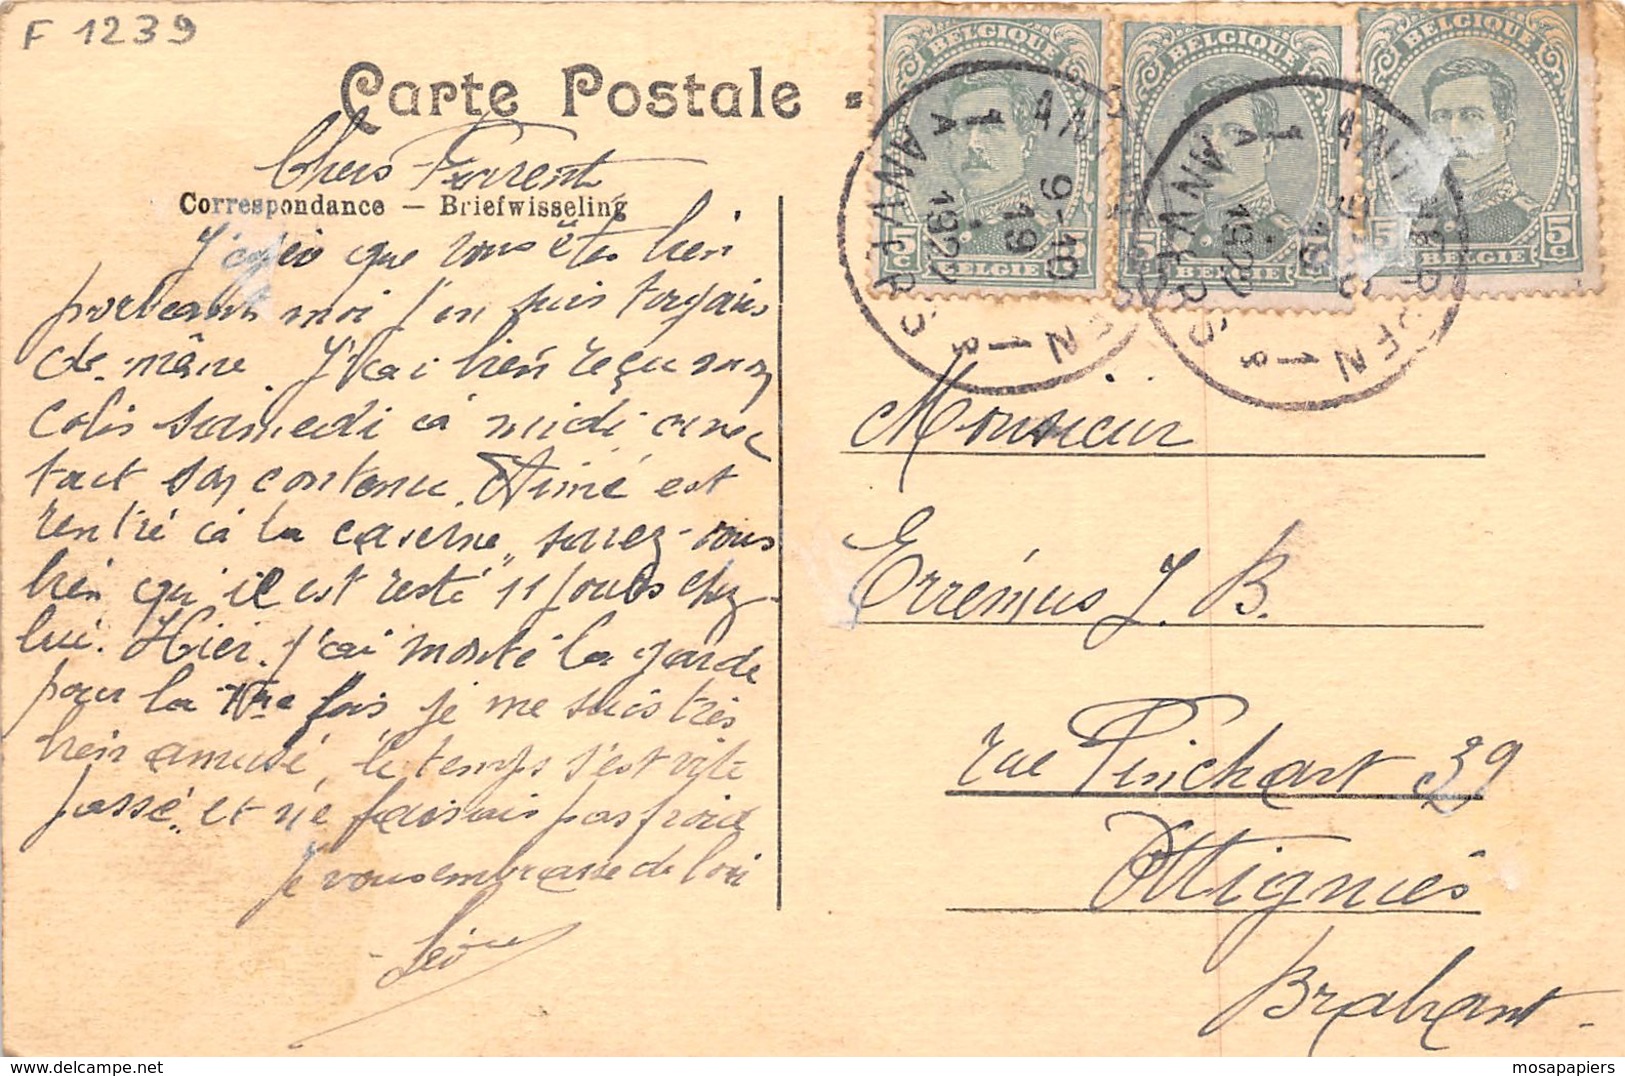 F 1239
Carte Postale
Chers Parrent
Correspondance – Briefwisseling
J'espère que vous êtes bien
portant moi j'en suis toujours
de même. J'ai bien reçu mon
colis samedi à midi avec
tout son contenu. Aimé est
rentré à la caserne, savez-vous
bien qu'il est resté 11 jours chez
lui. Hier j'ai monté la garde
pour la 1ère fois je me suis très
bien amusé, le temps s'est vite
passé. et n'e faisais pas froid
Je vous embrasse de loin
Léon
BELGIQUE
5c 5c
BELGIE
BELGIQUE
5c
BELGIE
BELGIQUE
5c 5c
BELGIE
ANTWERPEN 1
1A ANVERS
9-10
19
1922
ANTWERPEN 1
1A ANVERS
19
1922
Monsieur
Errémus J. B.
rue Pinchart 39
Ottignies
Brabant.
mosapapiers